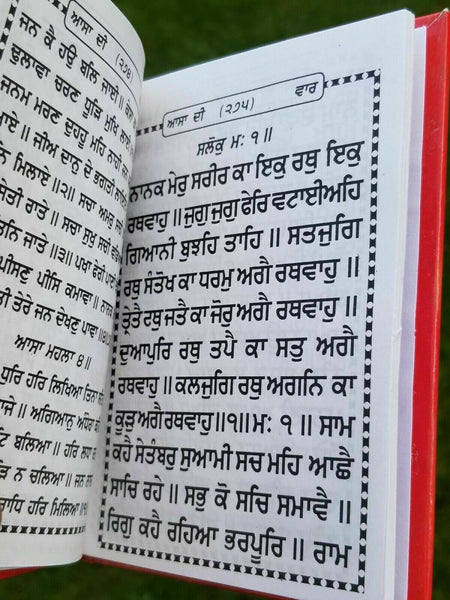 ਆਸਾ ਦੀ (੨੭੪)
ਜਨ ਕੈ ਹਉ ਬਲਿ ਜਾਈ ॥
ਝੁਲਾਵਾ ਚਰਣ ਧੂੜਿ ਮੁਖਿ ਲਾਈ
ਜਨਮ ਮਰਣ ਦੁਹਹੂ ਮਹਿ ਨਾਹੀ
ਆਏ ॥ ਜੀਅ ਦਾਨੁ ਦੇ ਭਗਤੀ
ਨਿ ਮਿਲਾਏ ॥੨॥ ਸਚਾ ਅਮਰੁ
ਸੇਤੀ ਰਾਤੇ ॥ ਸਚਾ ਸੁਖੁ ਸਚੀ
ਤਨਿ ਜਾਤੇ ॥੩॥ ਪਖਾ ਫੇਰੀ
ਪੀਸਣੁ ਪੀਸਿ ਕਮਾਵਾ ॥ ਨਾਨਕ
ਤੇਰੇ ਜਨ ਦੇਖਣੁ ਪਾਵਾ ॥
ਆਸਾ ਮਹਲਾ ੪ ॥
ਧੁਰਿ ਹਰਿ ਲਿਖਿਆ ਤਿਨਾ
ਅਗਿਆਨੁ ਅੰਧੇਰਾ
ਬਲਿਆ ॥ ਹਰਿ ਲਧਾ
ਨ ਚਲਿਆ ॥ ਜਨ
ਹਰਿ ਮਿਲਿਆ
ਆਸਾ ਦੀ (੨੭੫) ਵਾਰ
ਸਲੋਕੁ ਮਃ ੧॥
ਨਾਨਕ ਮੇਰੁ ਸਰੀਰ ਕਾ ਇਕੁ ਰਥੁ ਇਕੁ
ਰਥਵਾਹੁ ॥ ਜੁਗੁ ਜੁਗੁ ਫੇਰਿ ਵਟਾਈਅਹਿ
ਗਿਆਨੀ ਬੁਝਹਿ ਤਾਹਿ ॥ ਸਤਜੁਗਿ
ਰਥੁ ਸੰਤੋਖ ਕਾ ਧਰਮੁ ਅਗੈ ਰਥਵਾਹੁ ॥
ਤ੍ਰੇਤੈ ਰਥੁ ਜਤੈ ਕਾ ਜੋਰੁ ਅਗੈ ਰਥਵਾਹੁ ॥
ਦੁਆਪੁਰਿ ਰਥੁ ਤਪੈ ਕਾ ਸਤੁ ਅਗੈ
ਰਥਵਾਹੁ ॥ ਕਲਜੁਗਿ ਰਥੁ ਅਗਨਿ ਕਾ
ਕੂੜੁ ਅਗੈ ਰਥਵਾਹੁ॥੧॥ਮਃ ੧ ॥ ਸਾਮ
ਕਹੈ ਸੇਤੰਬਰੁ ਸੁਆਮੀ ਸਚ ਮਹਿ ਆਛੈ
ਸਾਚਿ ਰਹੇ ॥ ਸਭੁ ਕੋ ਸਚਿ ਸਮਾਵੈ ॥
ਰਿਗੁ ਕਹੈ ਰਹਿਆ ਭਰਪੂਰਿ ॥ ਰਾਮ